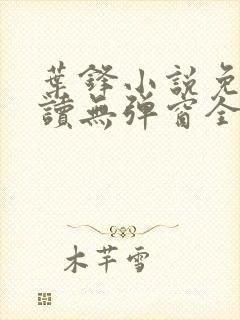 葉鋒小說免
讀無彈窗全
木芊雪